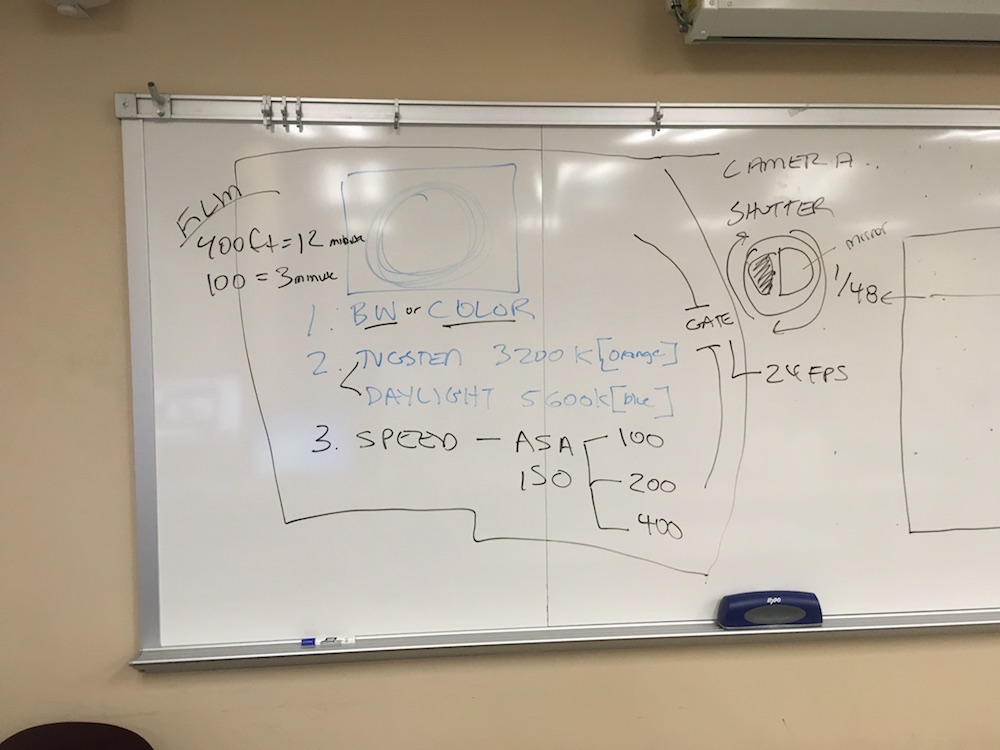 FILM
400ft = 12 minute
100 = 3 minute
1. BW or COLOR
2. TUGSTEN 3200K [orange]
DAYLIGHT 5600K [blue]
3. SPEED — ASA
ISO
100
200
400
CAMERA..
SHUTTER
mirror
1/48
GATE
24 FPS
EXPO